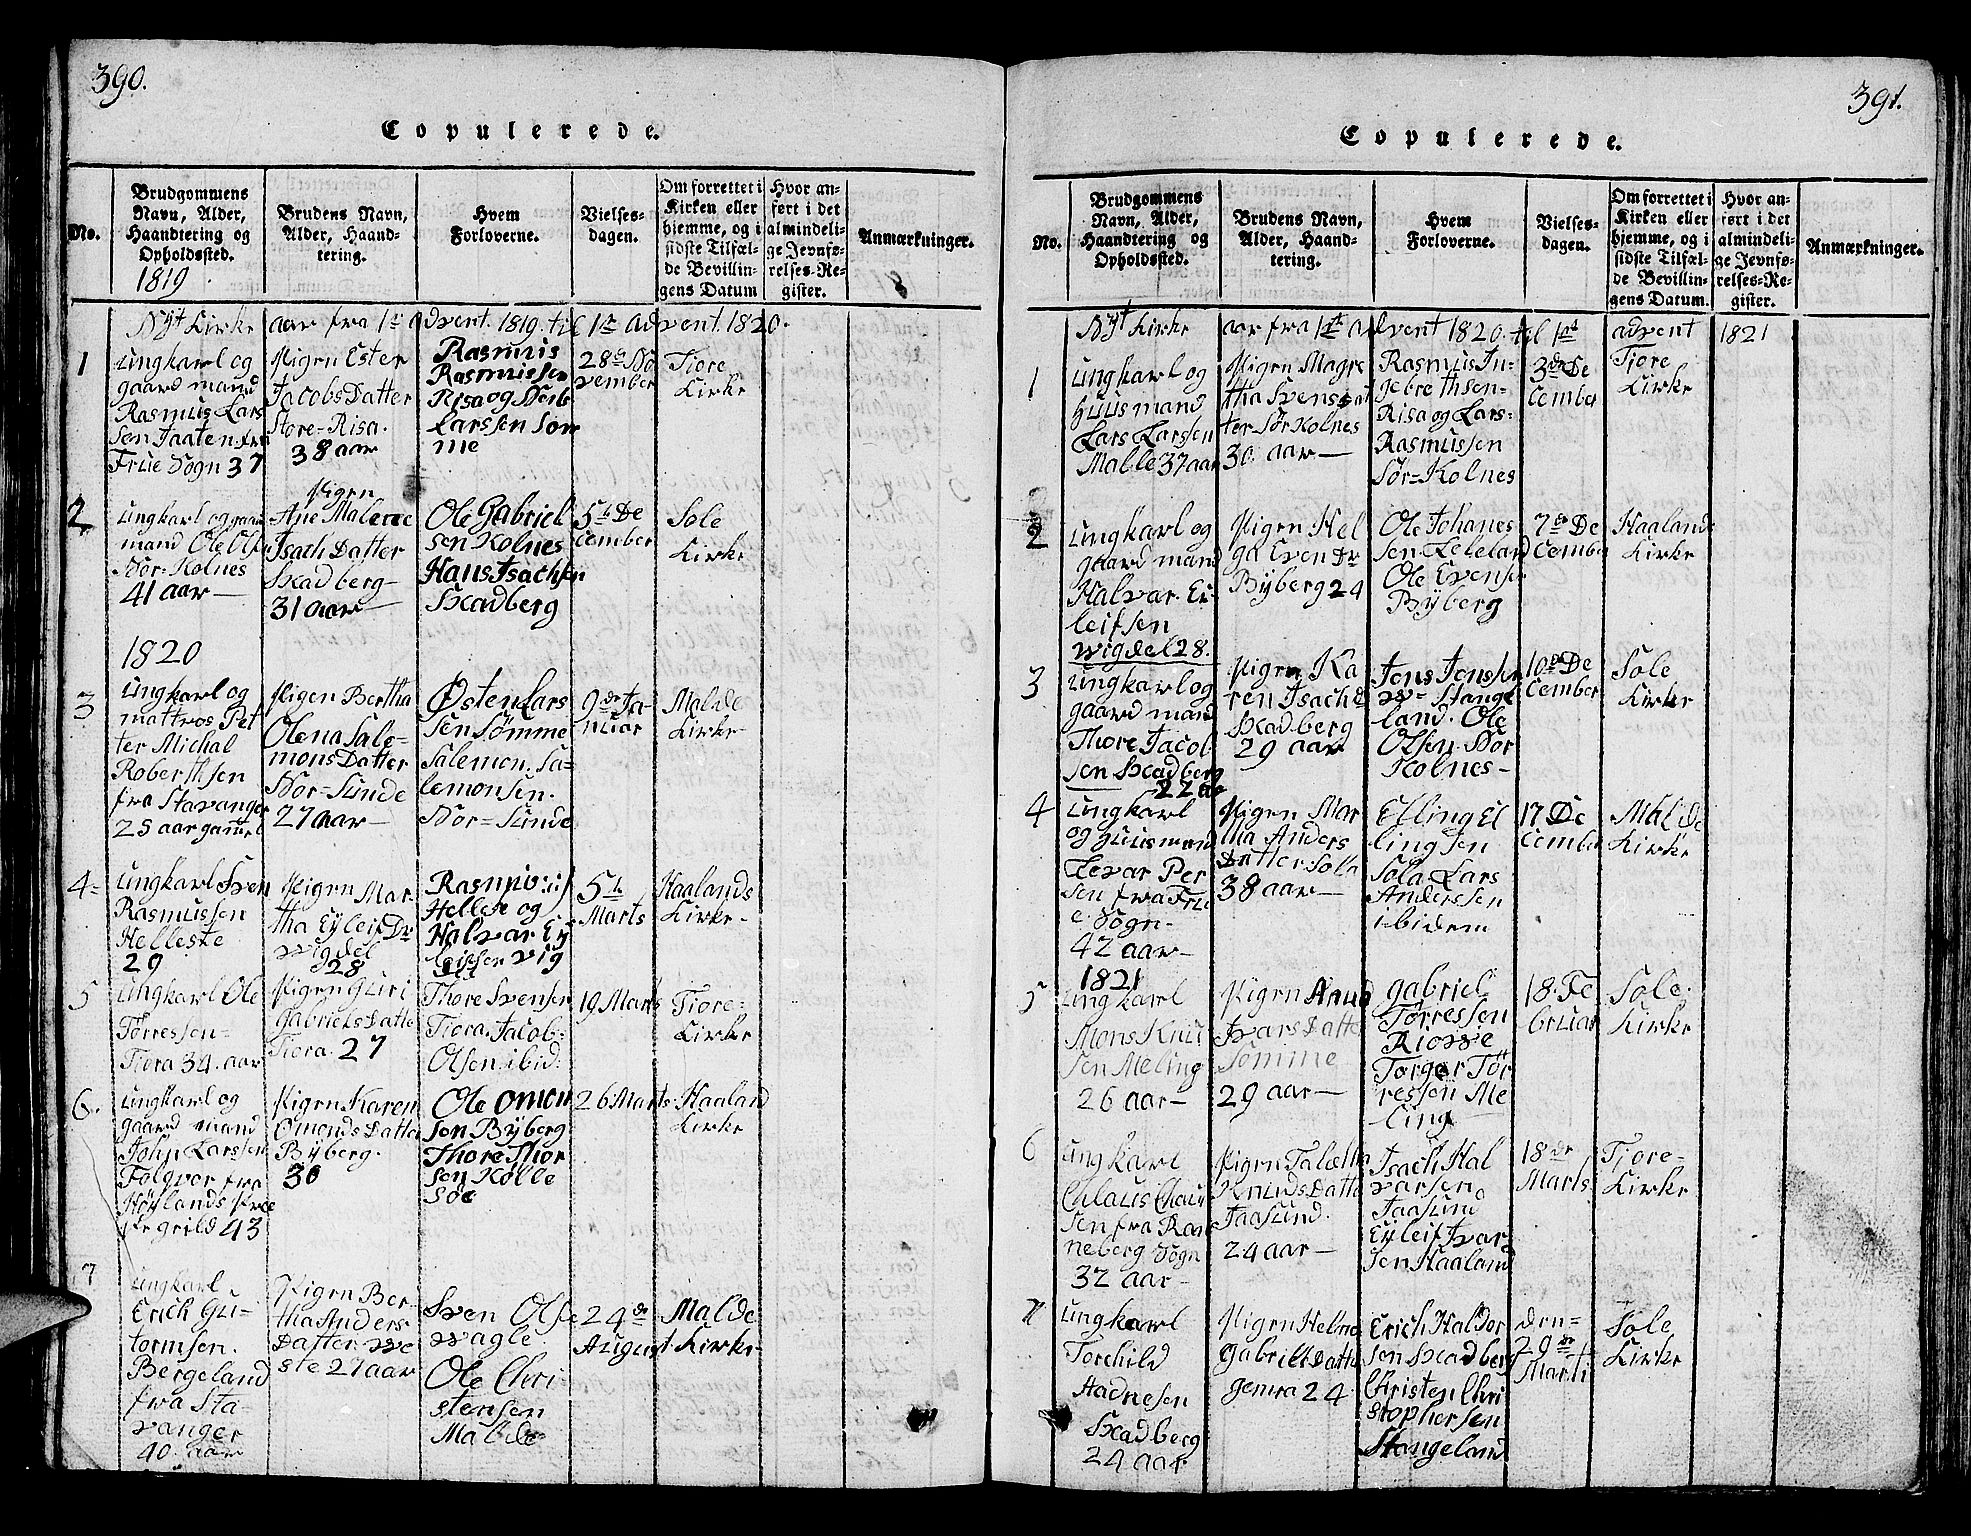 390.
Copulerede.
No.
Brudgommens
Navn, Alder,
Haandtering og
Opholdssted.
1819
Brudens Navn,
Alder, Haand-
tering.
Hvem
Forloverne.
Vielses-
dagen.
Om forrettet i
Kirken eller
hjemme, og i
sidste Tilfæl-
de Bevillin-
gens Datum
Hvor an-
ført i det
almindeli-
ge Jevnfø-
relses-Re-
gister.
Anmærkninger.
Nÿt Kirke aar fra 1te advent. 1819. til 1te advent. 1820.
1
ungkarl og
gaard mand
Rasmus Lars
sen Taaten fra
Frue Sogn 37
Pigen Ester
Jacobs Datter
Store=Risa.
38 aar
Rasmus
Rasmussen
Risa og Nör
Larssen Söm
me
28de No
vember
Tiore
Kirke
2
ungkarl og gaar
mand Ole Ols
Nör=Kolnes
41 aar
Pigen
Ane Malene
Isach Datter
Skadberg
31 aar
Ole Gabriel
sen Kolnes
Hans Isachsen
Skadberg
5te De
cember
Sole
Kirke
1820
3
ungkarl og
mattros Pet
ter Michal
Roberthsen
fra Stavanger
25 aar gamel
Pigen Bertha
Olena Sale=
mons Datter
Nör=Sunde
27 aar
Østen Lars
sen Sømme
Salemon. Sa=
lemonsen.
Nör=Sunde
9de Ja-
nuar
Malde
Kirke
4
ungkarl Sven
Rasmussen
Helleste
29
Pigen Mar-
tha Eyleif Dr
Wigdel
28
Hellest og
Halvar Eÿ
leifsen Vig
del
5te
Marts
Haalands
Kirke
5
ungkarl Ole
Torressen=
Tiora 34. aar
Pigen Guri
Gabriels Datte
Tiora. 27
Thore Svensen
Tiora. Jacob=
Olsen ibid:
19 Marts
Tiore=
Kirke
6.
ungkarl og
gaard mand
John Larssen
Folgvor fra
Höÿlands Præ
stegield 43
Pigen Karen
Omonds Datter
Bÿberg.
30
Ole Omon
sen Bÿberg
Thore Thor
sen Kolle
söe
26 Marts
Haaland
Kirke
7
ungkarl
Erich Gu-
tormsen.
Bergeland
fra Sta
vanger
40 aar
Pigen Ber-
tha Anders
Datter We
ste 27 aar
Sven Olse
Vagle
Ole Chri
stensen
Malde
24de
August
Malde
Kirke
391.
Copulerede.
No.
Brudgommens
Navn, Alder,
Haandtering og
Opholdssted.
Brudens Navn,
Alder, Haand-
tering.
Hvem
Forloverne.
Vielses-
dagen.
Om forrettet i
Kirken eller
hjemme, og i
sidste Tilfæl-
de Bevillin-
gens Datum.
Hvor an-
ført i det
almindeli-
ge Jevnfø-
relses-Re-
gister.
Anmærkninger.
Nÿt Kirke aar fra 1te advent 1820. til 1te advent 1821
1
ungkarl og
Huusmand
Lars Larssen
Malle 37 aar
Pigen Magre
tha Svens Dat
ter Sör Kolnes
30. aar
Rasmus In-
gebrethsen-
Risa og Lars=
Rasmussen
Sör=Kolnes
3de De
Cember
Tjore
Kirke
2
ungkarl og
gaard mand
Halvar. Eÿ
leifsen
Wigdel 28.
Pigen Hel
ga Even Dr
Bÿberg 24
Ole Johanes
sen
Ole Evensen
Bÿberg
7de De
Cember
Haalands
Kirke
3
ungkarl og
gaard mand
Thore Jacob
sen Skadberg
22 aar
Pigen Ka
ren Isach d
Skadberg
29 aar
Jens Jensen
Stange
land. Ole
Olsen. Nör
Kolnes-
10de De
Cember
Sole
Kirke
4
ungkarl
og Huusmand
Levar Per
sen fra Fru
e. Sogn-
42 aar
Pigen Mar
tha Anders
Datter Sola
38 aar
Elling El
lingsen
Sola. Lars
Anderssen
ibidem
17 De
Cember
Malde
Kirke
1821
5
ungkarl
Mons Knut
sen Meling
26 aar
Pigen Aaud
Ivars Datte
Sømme
29 aar
gabriel
Torressen
Risge
Torger Tör
ressen Me
ling
18. Fe
bruar
Sole.
Kirke
6
ungkarl
Claus Claus
sen fra Ran
neberg Sogn
32 aar
Pigen Taletha
Knuds Datte
Jaasund.
24 aar
Isach Hal
varsen
Jaasund
Eÿleif Ivar
sen Haaland
18de
Marts
Tjore=
Kirke
7
ungkarl
Torchild
Aadnesen
Skadberg
24 aar
Pigen Helne
Gabriels Datte
gemra 24
Erich Haldor
sen Skadberg
Christen Chri
stophersen
Stangeland
den=
29de
Marti
Sole
Kirke